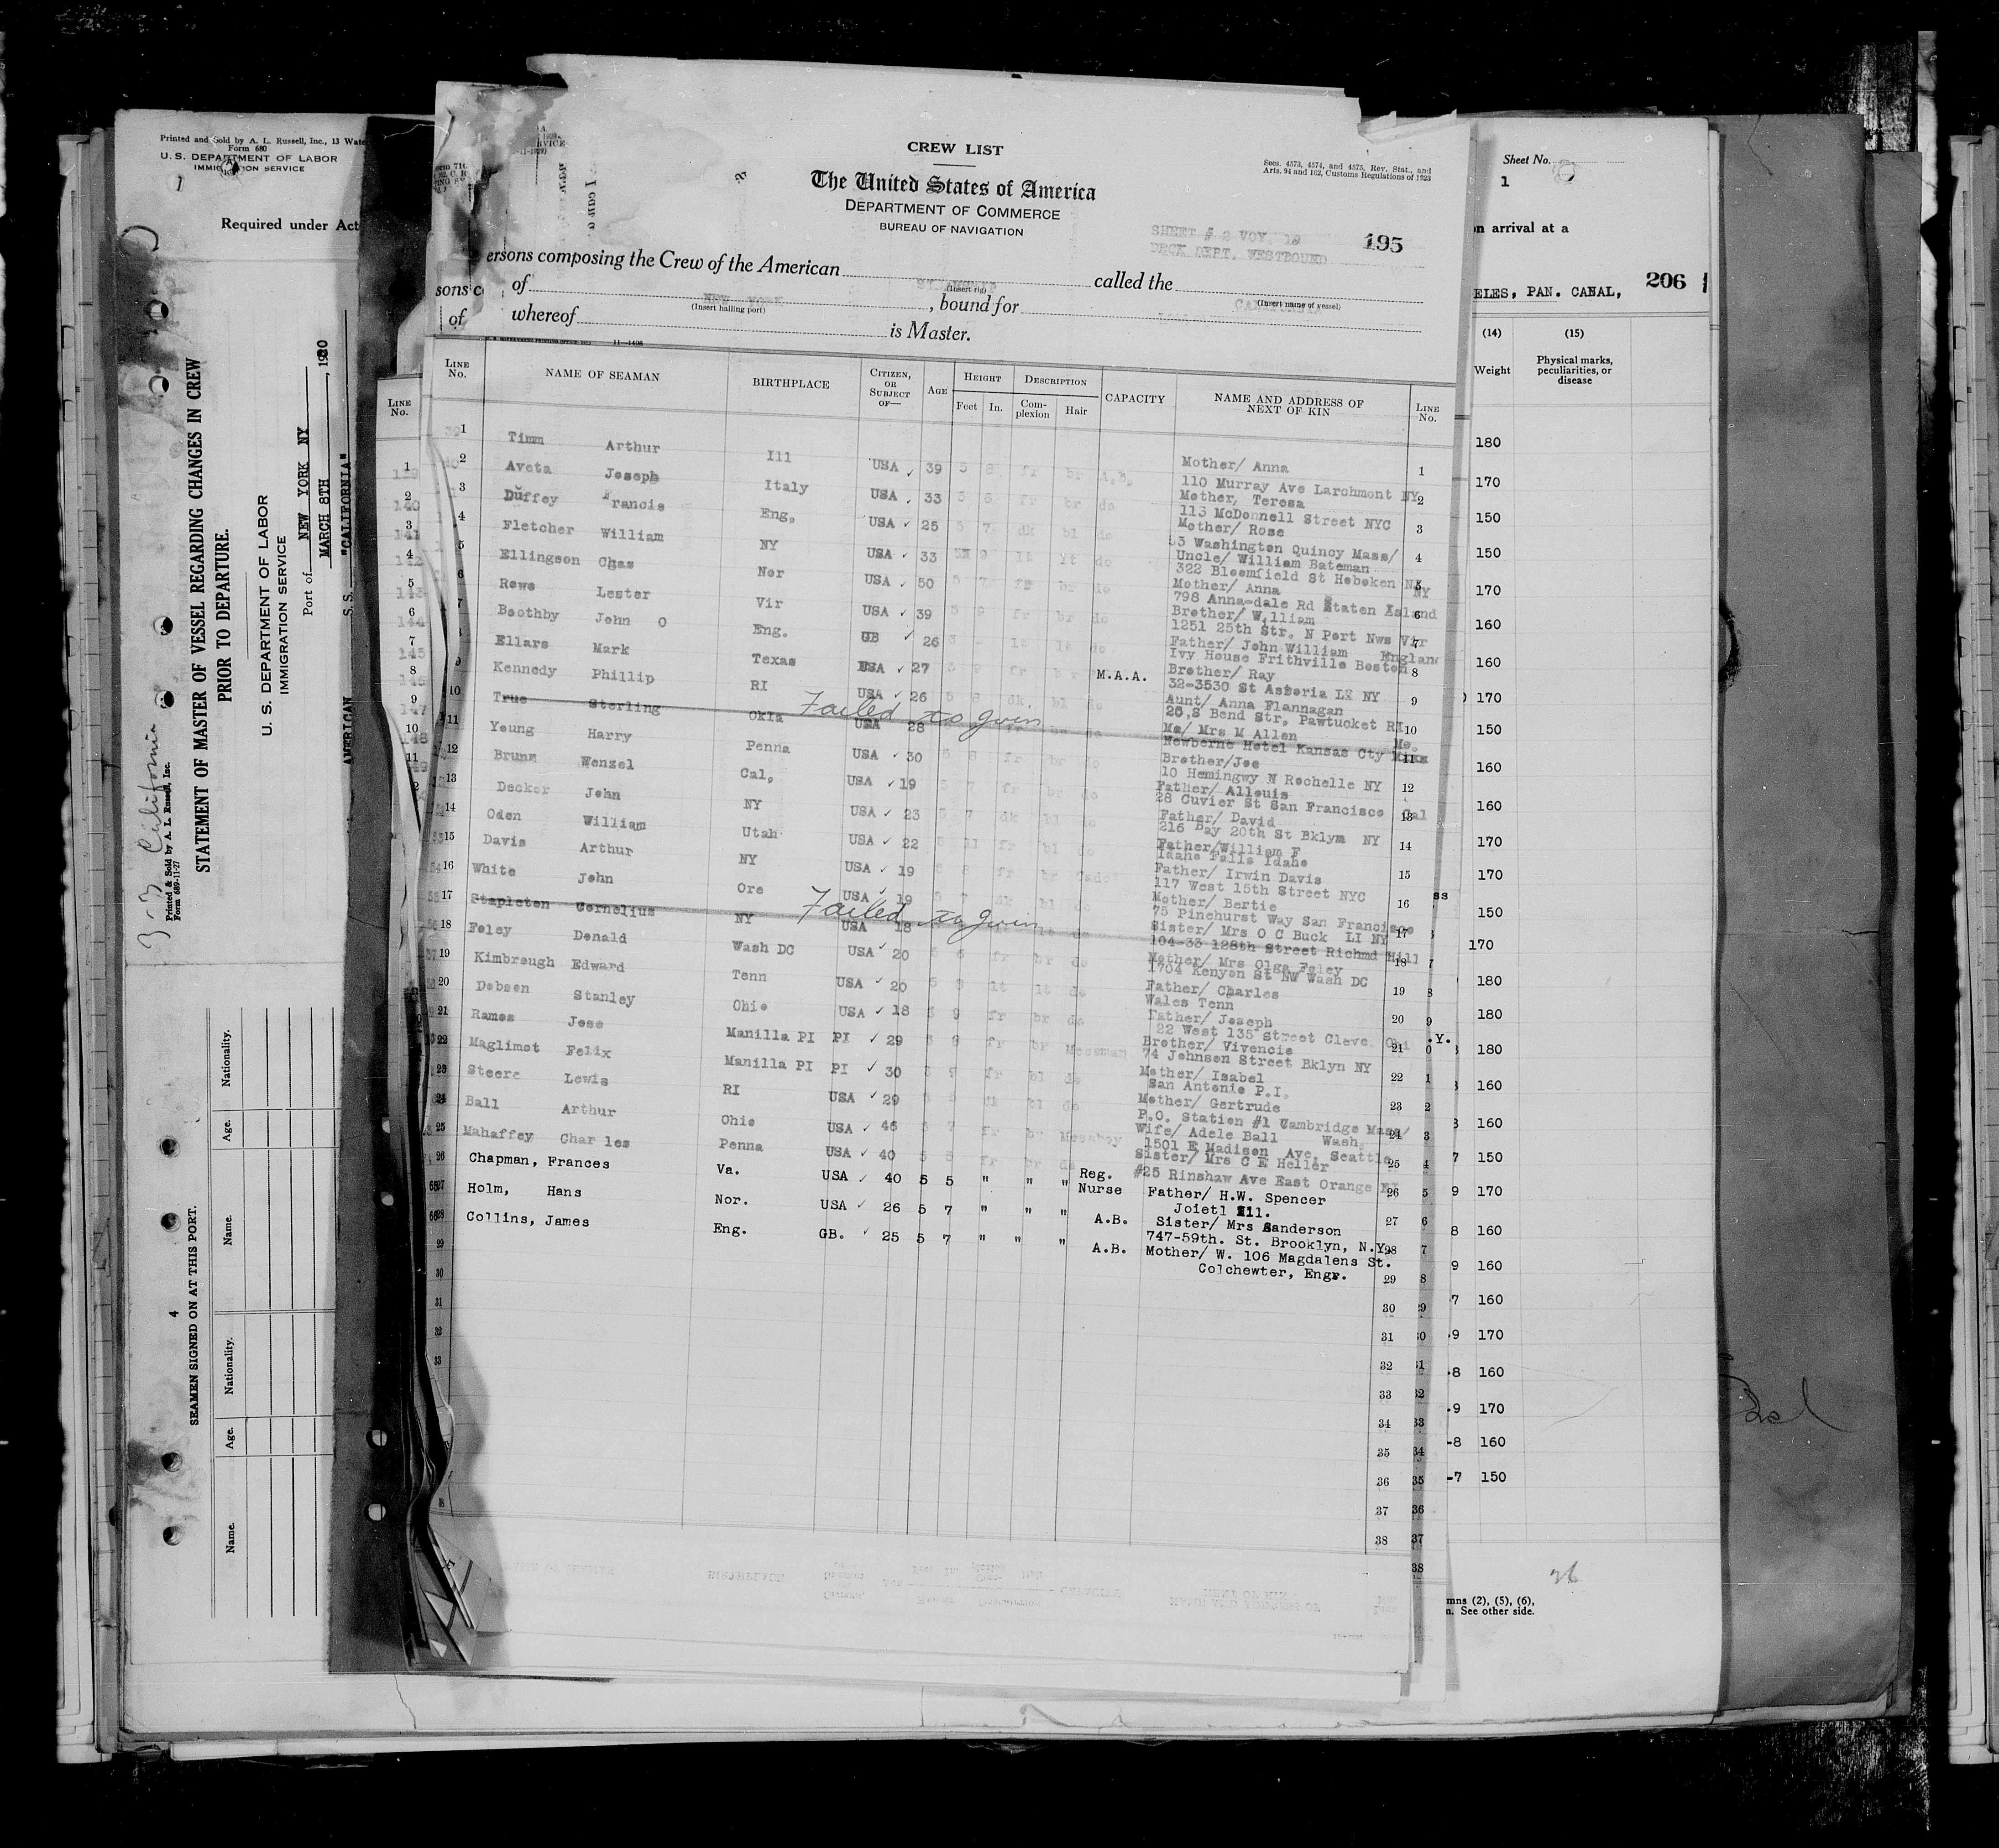 Printed and Sold by A. L. Russell, Inc., 13 Wate
Form 680
U. S. DEPARTMENT OF LABOR
IMMIGRATION SERVICE
1
Required under Act
STATEMENT OF MASTER OF VESSEL REGARDING CHANGES IN CREW
PRIOR TO DEPARTURE.
U. S. DEPARTMENT OF LABOR
IMMIGRATION SERVICE
Port of NEW YORK NY
MARCH 8TH , 1930
AMERICAN S.S. "CALIFORNIA"
Printed & Sold by A. L. Russell, Inc.
Form 689-11-27
California
4
SEAMEN SIGNED ON AT THIS PORT.
Name. Age. Nationality.
Name. Age. Nationality.
CREW LIST
The United States of America
DEPARTMENT OF COMMERCE
BUREAU OF NAVIGATION
Secs. 4573, 4574, and 4575, Rev. Stat., and
Arts. 94 and 162, Customs Regulations of 1923
SHEET # 2 VOY. 19
DECK DEPT. WESTBOUND
195
ersons composing the Crew of the American called the
(Insert rig) (Insert name of vessel)
of NEW YORK , bound for
(Insert hailing port)
whereof is Master.
LINE No. NAME OF SEAMAN BIRTHPLACE CITIZEN, OR SUBJECT OF— AGE HEIGHT Feet In. DESCRIPTION Complexion Hair CAPACITY NAME AND ADDRESS OF NEXT OF KIN LINE No.
1 Timm Arthur Ill USA 39 5 8 fr br A.B. Mother/ Anna
110 Murray Ave Larchmont NY
2 Aveta Joseph Italy USA 33 5 8 fr br do Mother, Teresa
113 McDonnell Street NYC
3 Duffey Francis Eng, USA 25 5 7 dk bl do Mother/ Rose
53 Washington Quincy Mass/
4 Fletcher William NY USA 33 9 lt lt do Uncle/ William Bateman
322 Bloomfield St Hoboken NJ
5 Ellingson Chas Nor USA 50 5 7 br do Mother/ Anna
798 Anna-dale Rd Staten Island NY
6 Rowe Lester Vir USA 39 5 9 fr br do Brother/ William
1251 25th Str. N Port Nws Vir
7 Boothby John O Eng. GB 26 lt lt do Father/ John William
Ivy House Frithville Boston England
8 Ellars Mark Texas USA 27 fr br M.A.A. Brother/ Ray
32-3530 St Astoria LI NY
9 Kennedy Phillip RI USA 26 5 8 dk bl do Aunt/ Anna Flannagan
26,S Bend Str, Pawtucket RI
10 True Sterling Okla USA 28 Mo/ Mrs M Allen
Newberne Hotel Kansas Cty Mo.
Failed to join
11 Young Harry Penna USA 30 5 8 fr br do Brother/Joe
10 Hemingwy N Rochelle NY
12 Brunn Wenzel Cal, USA 19 5 7 fr br do Father/ Allouis
28 Cuvier St San Francisco Cal
13 Decker John NY USA 23 5 7 dk bl do Father/ David
216 Bay 20th St Bklyn NY
14 Oden William Utah USA 22 5 11 fr bl do Father/William F
Idaho Falls Idaho
15 Davis Arthur NY USA 19 5 8 fr br Cadet Father/ Irwin Davis
117 West 15th Street NYC
16 White John Ore USA 19 5 7 dk bl do Mother/ Bertie
75 Pinehurst Way San Francisco
17 Stapleton Cornelius NY USA 18 Sister/ Mrs O C Buck LI NY
104-33 128th Street Richmd Hill
Failed to join
18 Foley Donald Wash DC USA 20 5 6 fr br do Mother/ Mrs Olga Foley
1704 Kenyon St NW Wash DC
19 Kimbrough Edward Tenn USA 20 5 8 lt lt do Father/ Charles
Wales Tenn
20 Dobson Stanley Ohio USA 18 5 9 fr br do Father/ Joseph
22 West 135 Street Cleve.
21 Ramos Jose Manilla PI PI 29 5 8 fr br Messman Brother/ Vivencio
74 Johnson Street Bklyn NY
22 Maglimot Felix Manilla PI PI 30 5 7 fr bl do Mother/ Isabel
San Antonio P.I.
23 Steere Lewis RI USA 29 5 dk bl do Mother/ Gertrude
P.O. Station #1 Cambridge Mass/
24 Ball Arthur Ohio USA 46 5 7 fr br Messboy Wife/ Adele Ball Wash.
1501 E Madison Ave. Seattle
25 Mahaffey Charles Penna USA 40 5 5 fr br do Sister/ Mrs C E Heller
#25 Rinshaw Ave East Orange NJ
26 Chapman, Frances Va. USA 40 5 5 " " " Reg. Nurse Father/ H.W. Spencer
Joietl Ill.
27 Holm, Hans Nor. USA 26 5 7 " " " A.B. Sister/ Mrs Sanderson
747-59th. St. Brooklyn, N.Y.
28 Collins, James Eng. GB. 25 5 7 " " " A.B. Mother/ W. 106 Magdalens St.
Colchewter, Engr.
29
30
31
32
33
34
35
36
37
38
Sheet No.
1
n arrival at a
ELES, PAN. CANAL, 206
(14) (15)
Weight Physical marks, peculiarities, or disease
180
170
150
150
170
160
160
170
150
160
160
170
170
150
170
180
180
180
160
160
150
170
160
160
160
170
160
170
160
150
26
mns (2), (5), (6),
n. See other side.